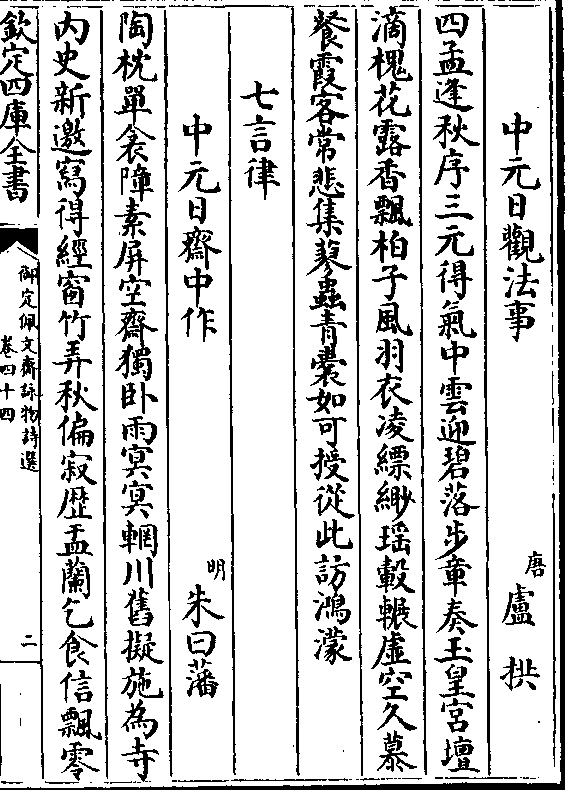 中元日觀法事 唐 盧拱
四孟逢秋序三元得氣中雲迎碧落步章奏玉皇宮壇
滴槐花露香飄柏子風羽衣凌縹緲瑤轂輾虛空久慕
餐霞客常悲集蓼蟲青囊如可授從此訪鴻濛
七言律
中元日齋中作 明 朱曰藩
陶枕單衾障素屏空齋獨臥雨冥冥輞川舊擬施為寺
内史新邀寫得經窗竹弄秋偏寂歴盂蘭乞食信飄零
欽定四庫全書
御定佩文齋詠物詩選
卷四十四
二